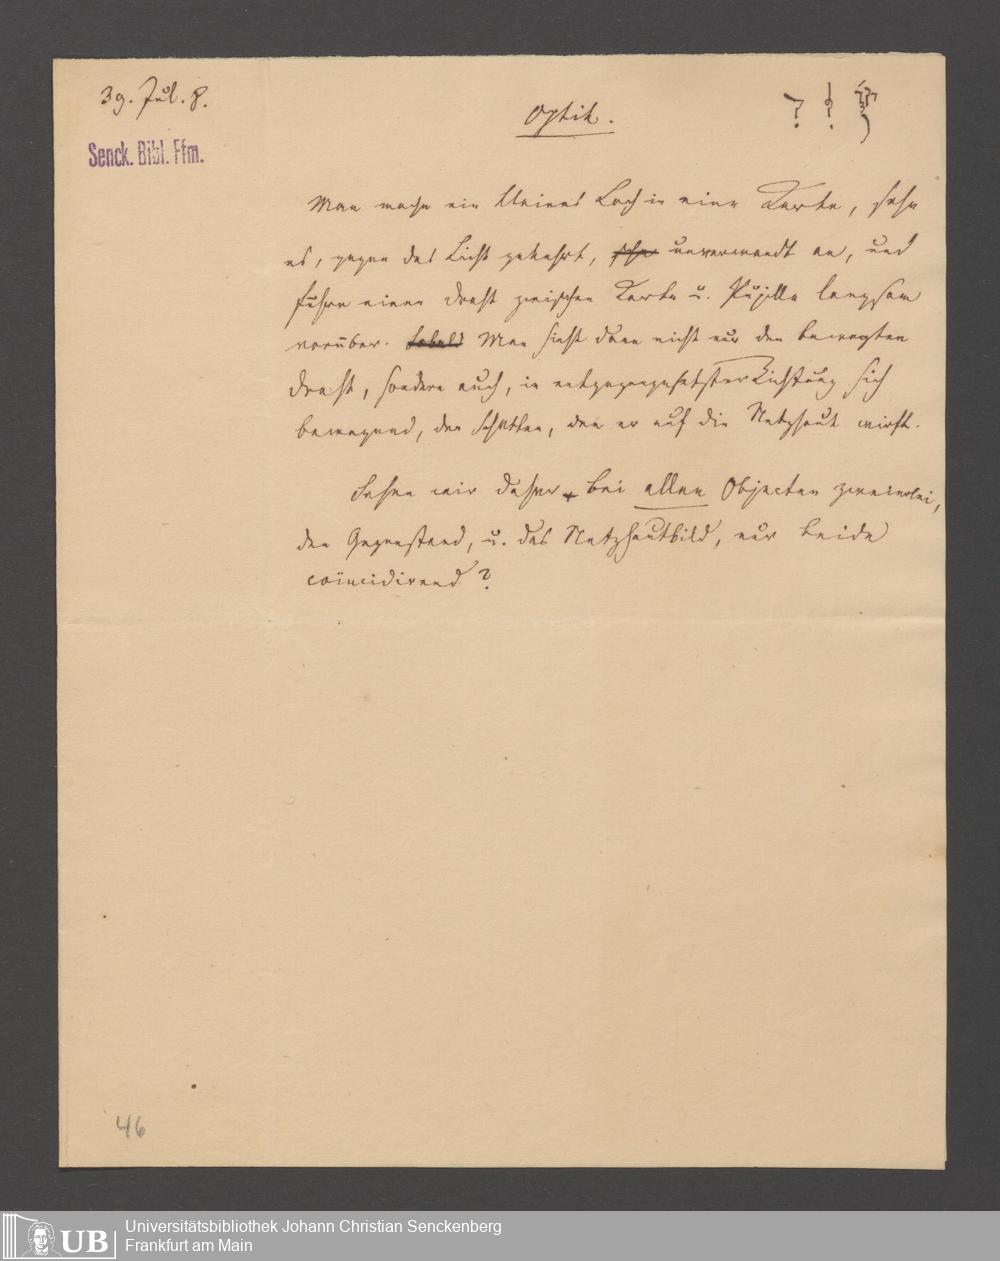 39. Jul. 8.
Optik.
? !
Senck. Bibl. Ffm.
Man mache ein kleines Loch in eine Karte, sehe
es, gegen das Licht gekehrt, sehe unverwandt an, und
führe einen Draht zwischen Karte u. Pupille langsam
vorüber. Sobald Man sieht dann nicht nur den bewegten
Draht, sondern auch, in entgegengesetzter Richtung sich
bewegend, den Schatten, den er auf die Netzhaut wirft.
Sehen wir daher bei allen Objecten zweierlei,
den Gegenstand, u. das Netzhautbild, nur beide
coïncidirend?
46
UB
Universitätsbibliothek Johann Christian Senckenberg
Frankfurt am Main